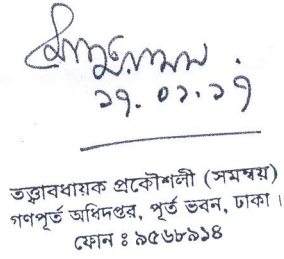 ২৭.০২.১৭
তত্ত্বাবধায়ক প্রকৌশলী (সমন্বয়)
গণপূর্ত অধিদপ্তর, পূর্ত ভবন, ঢাকা।
ফোন ঃ ৯৫৬৮৯১৪